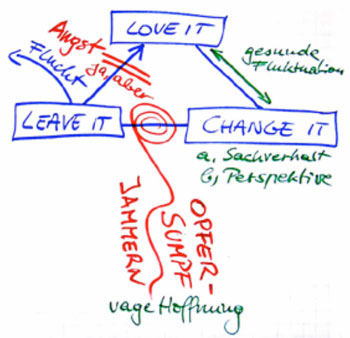 LOVE IT
Angst
ja, aber
Flucht
gesunde
Fluktuation
LEAVE IT
CHANGE IT
a, Sachverhalt
b, Perspektive
JAMMERN
OPFER-
SUMPF
vage Hoffnung